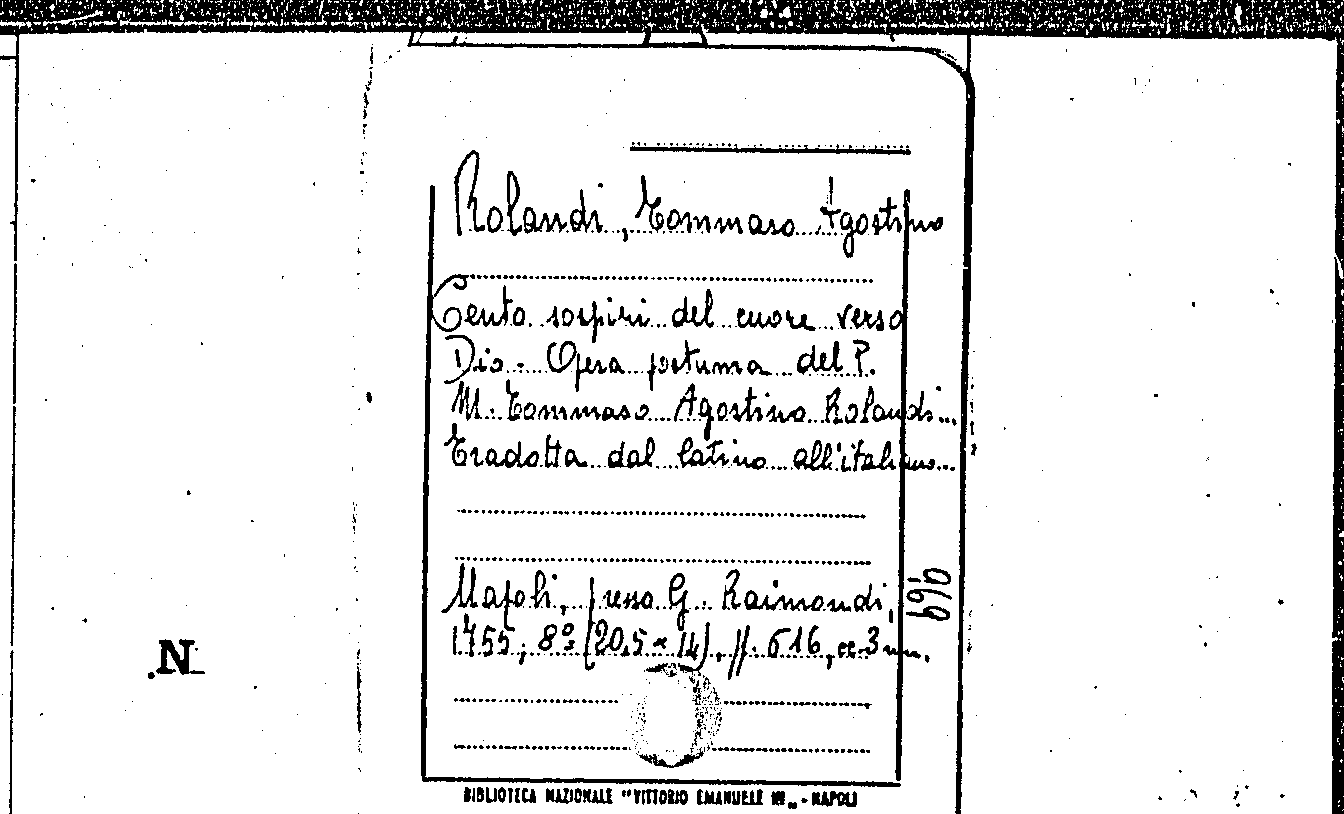 Rolandi, Tommaso Agostino
Cento sospiri del cuore verso
Dio. Opera postuma del P.
M. Tommaso Agostino Rolandi...
Tradotta dal latino all'italiano...
Napoli, presso G. Raimondi,
1755, 8º (20,5 × 14), pp. 616, cc. 3 nn.
969
N
BIBLIOTECA NAZIONALE "VITTORIO EMANUELE III„ - NAPOLI